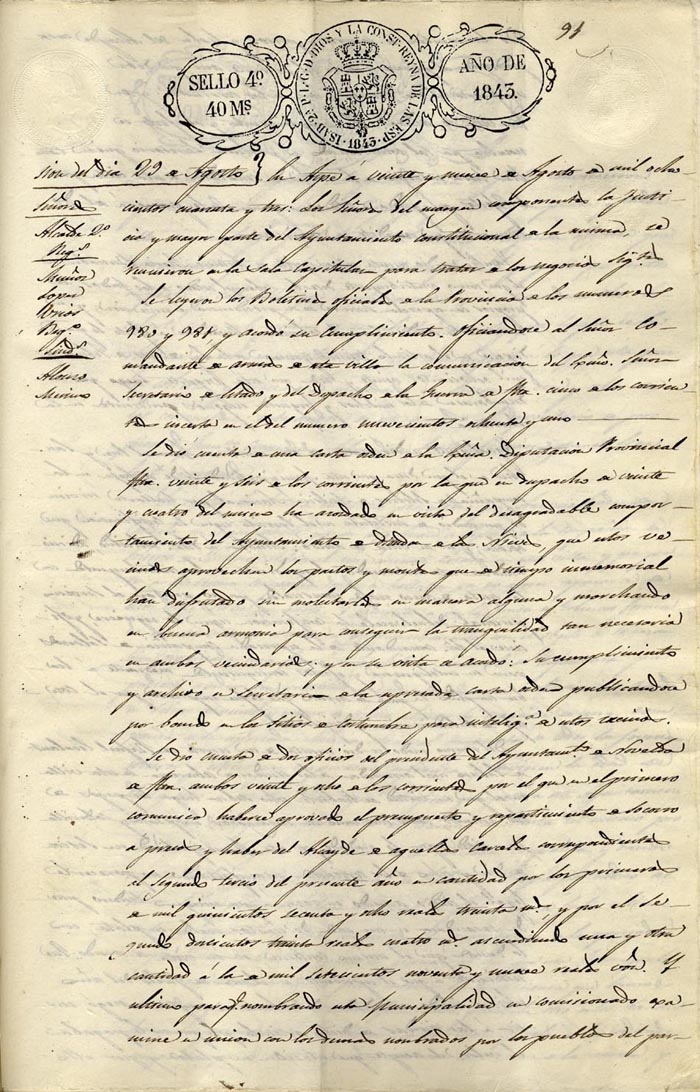 91
SELLO 4º
40 Ms.
ISAB. 2ª P. L. G. D. DIOS Y LA CONST. REYNA DE LAS ESP.
1843
AÑO DE
1843.
sion del dia 29 e Agosto
Señores
Alcalde 2º
Regs.
Muñoz
Lopez
Regs.
Sinds.
Alonso
Merino
En Aspe a veinte y nueve e Agosto e mil ocho-
cientos cuarenta y tres: Los Señores del margen componentes la Justi-
cia y mayor parte del Ayuntamiento constitucional e la misma, se
reunieron en la Sala Capitular para tratar e los negocios sigtes
Se leyeron los Boletines oficiales e la Provincia e los numeros
980 y 981 y acordó su cumplimiento. Oficiandose al Señor Co-
mandante e armas e esta villa la comunicacion del Exmo. Señor
Secretario e Estado y del Despacho e la Guerra e fha. cinco e los corrien-
tes inserta en el del numero novecientos ochenta y uno
Se dio cuenta e una carta orden e la Exma. Diputacion Provincial
fha. veinte y seis e los corrientes por la que en despacho e veinte
y cuatro del mismo ha acordado en vista del desagradable compor-
tamiento del Ayuntamiento e Hondon e las Nieves, que estos ve-
cinos aprovechen los pastos y montes que e tiempo inmemorial
han disfrutado sin molestarles en manera alguna y marchando
en buena armonia para conseguir la tranquilidad tan necesaria
en ambos vecindarios; y en su vista se acordó: Su cumplimiento
y archivo en Secretaria e la espresada carta orden publicandose
por bando en los sitios e costumbre para inteligª. e estos vecinos.
Se dio cuenta e dos oficios del presidente del Ayuntamto. e Novelda
e fha. ambos veinte y ocho e los corrientes por el que en el primero
comunica haberse aprovado el presupuesto y repartimiento e socorro
a presos y haber del Alcayde e aquellas carceles correspondientes
el segundo tercio del presente año en cantidad por los primeros
e mil quinientos sesenta y ocho reales treinta ms. y por el se-
gundo doscientos treinta reales cuatro ms. ascendiendo una y otra
cantidad á la e mil setecientos noventa y nueve reales von. Y
ultimo para q. nombrando esta Municipalidad un comisionado exa-
mine en union con los demas nombrados por los pueblos del par-